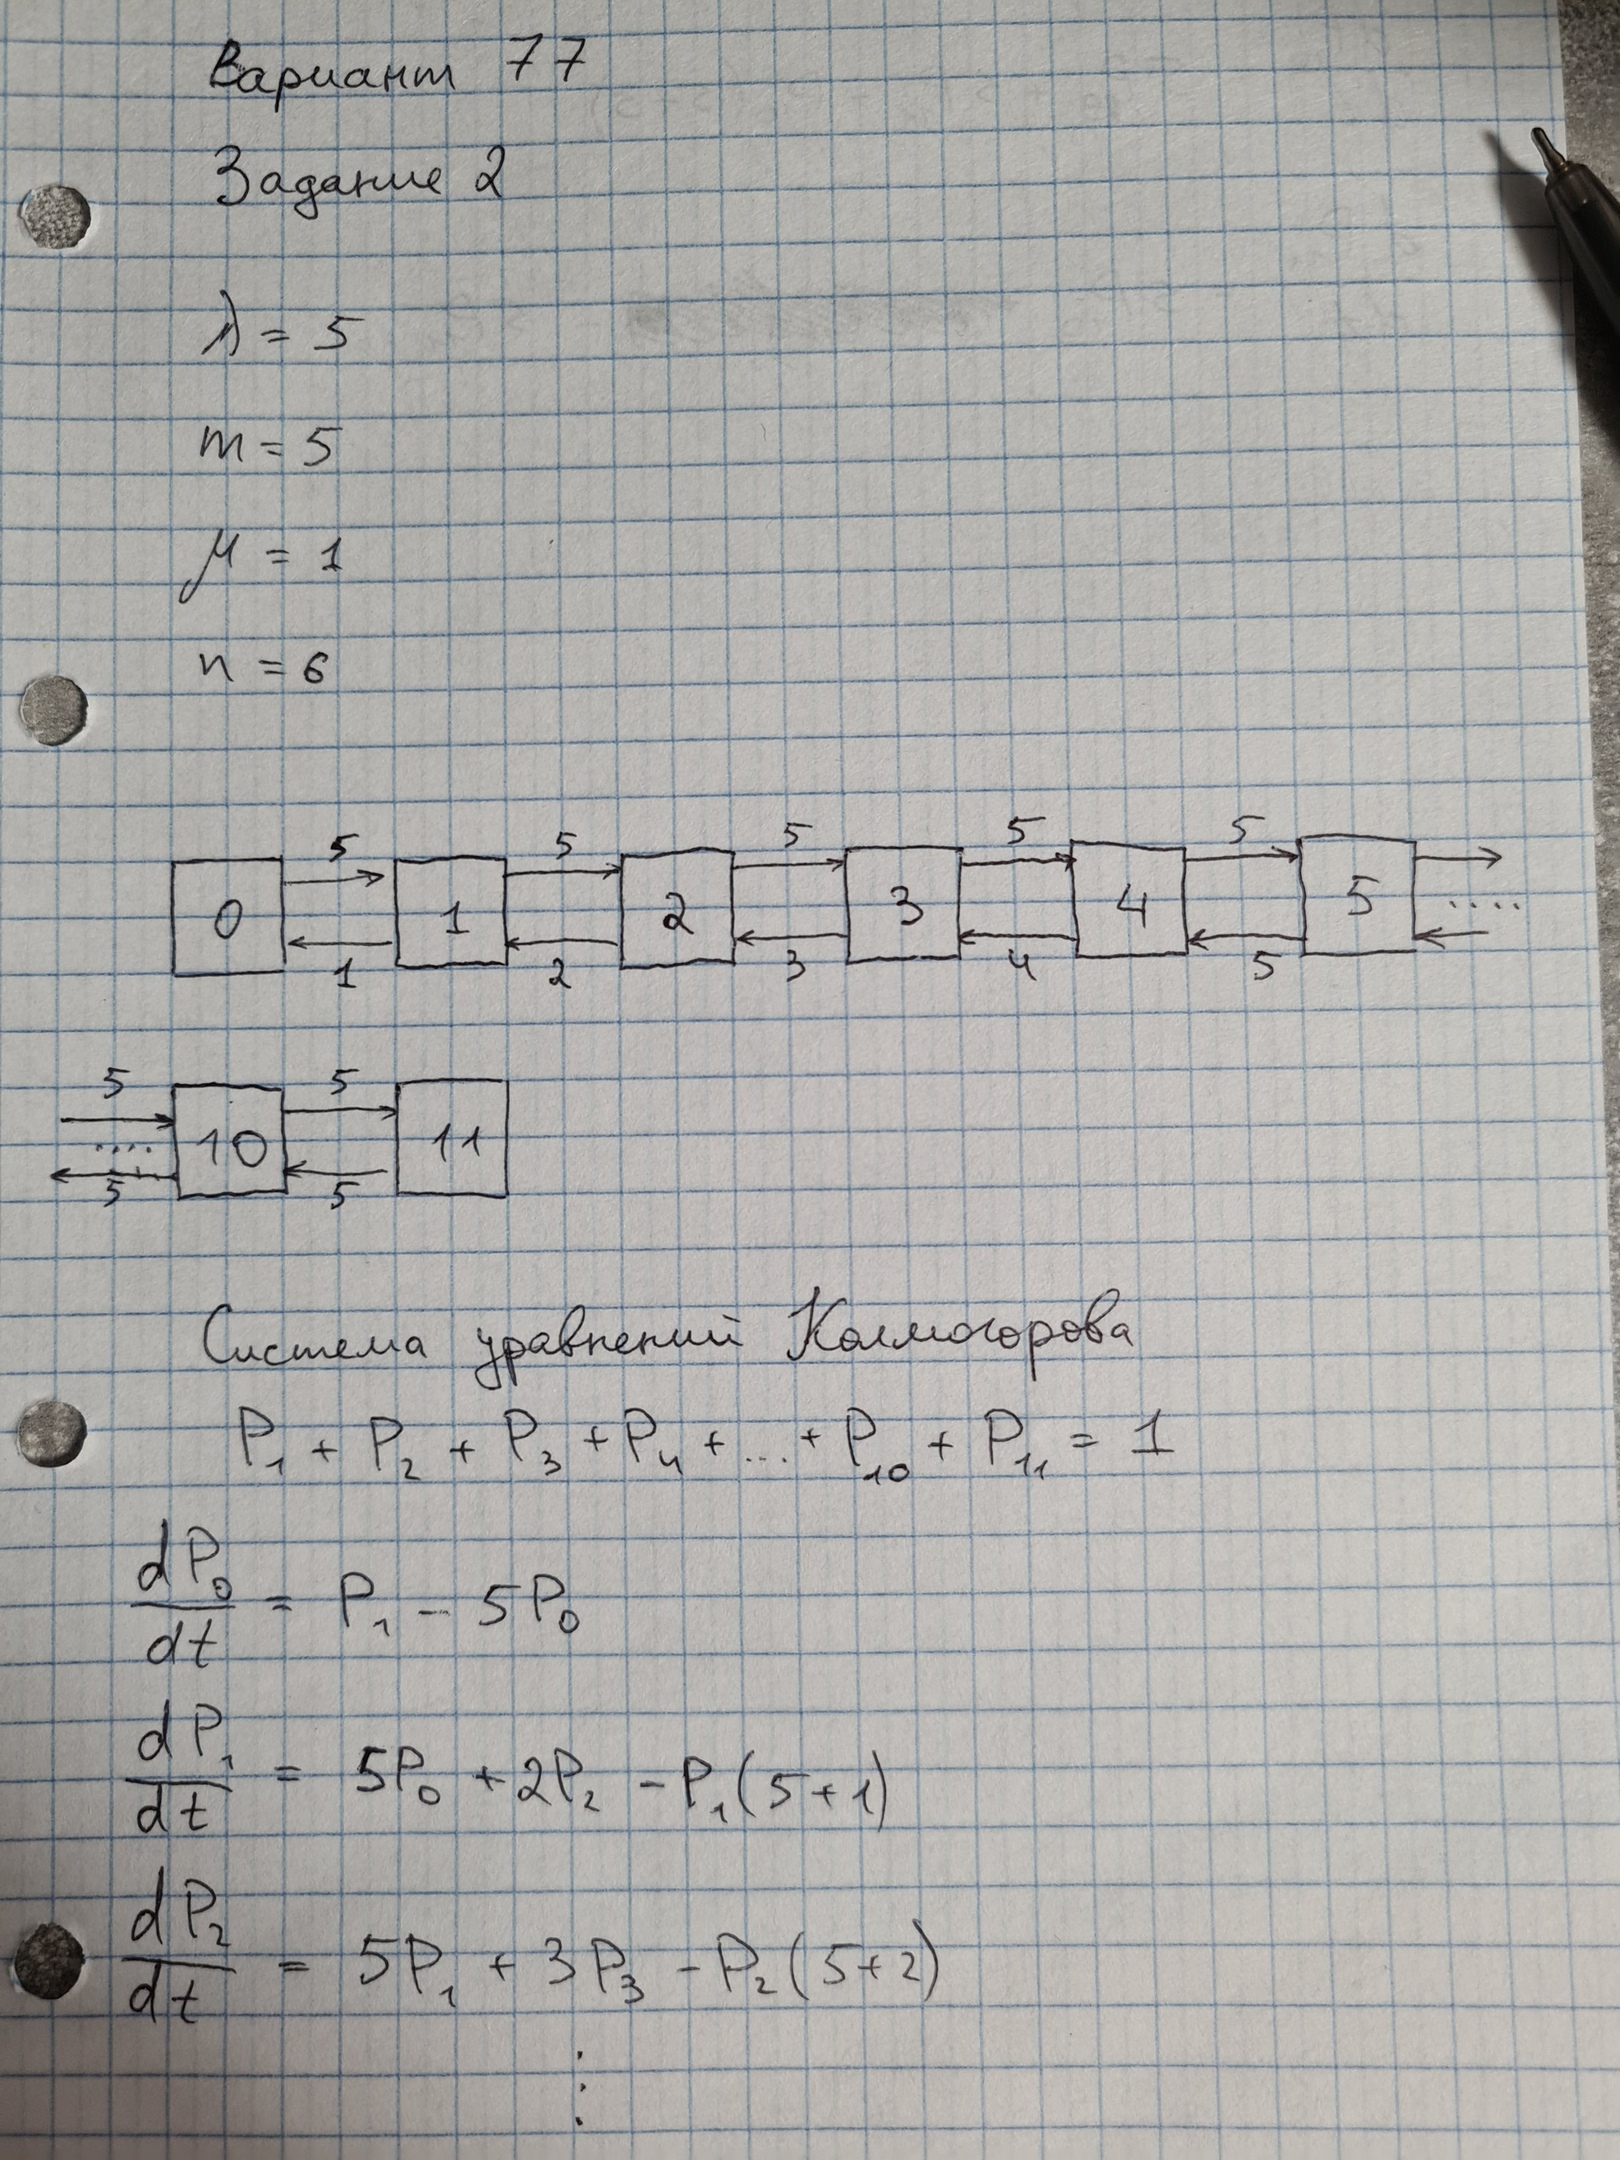 Вариант 77
Задание 2
λ = 5
m = 5
μ = 1
n = 6
5 5 5 5 5
0 1 2 3 4 5 ....
1 2 3 4 5
5 5
.... 10 11
5 5
Система уравнений Колмогорова
P₁ + P₂ + P₃ + P₄ + ... + P₁₀ + P₁₁ = 1
dP₀/dt = P₁ - 5P₀
dP₁/dt = 5P₀ + 2P₂ - P₁(5+1)
dP₂/dt = 5P₁ + 3P₃ - P₂(5+2)
⋮